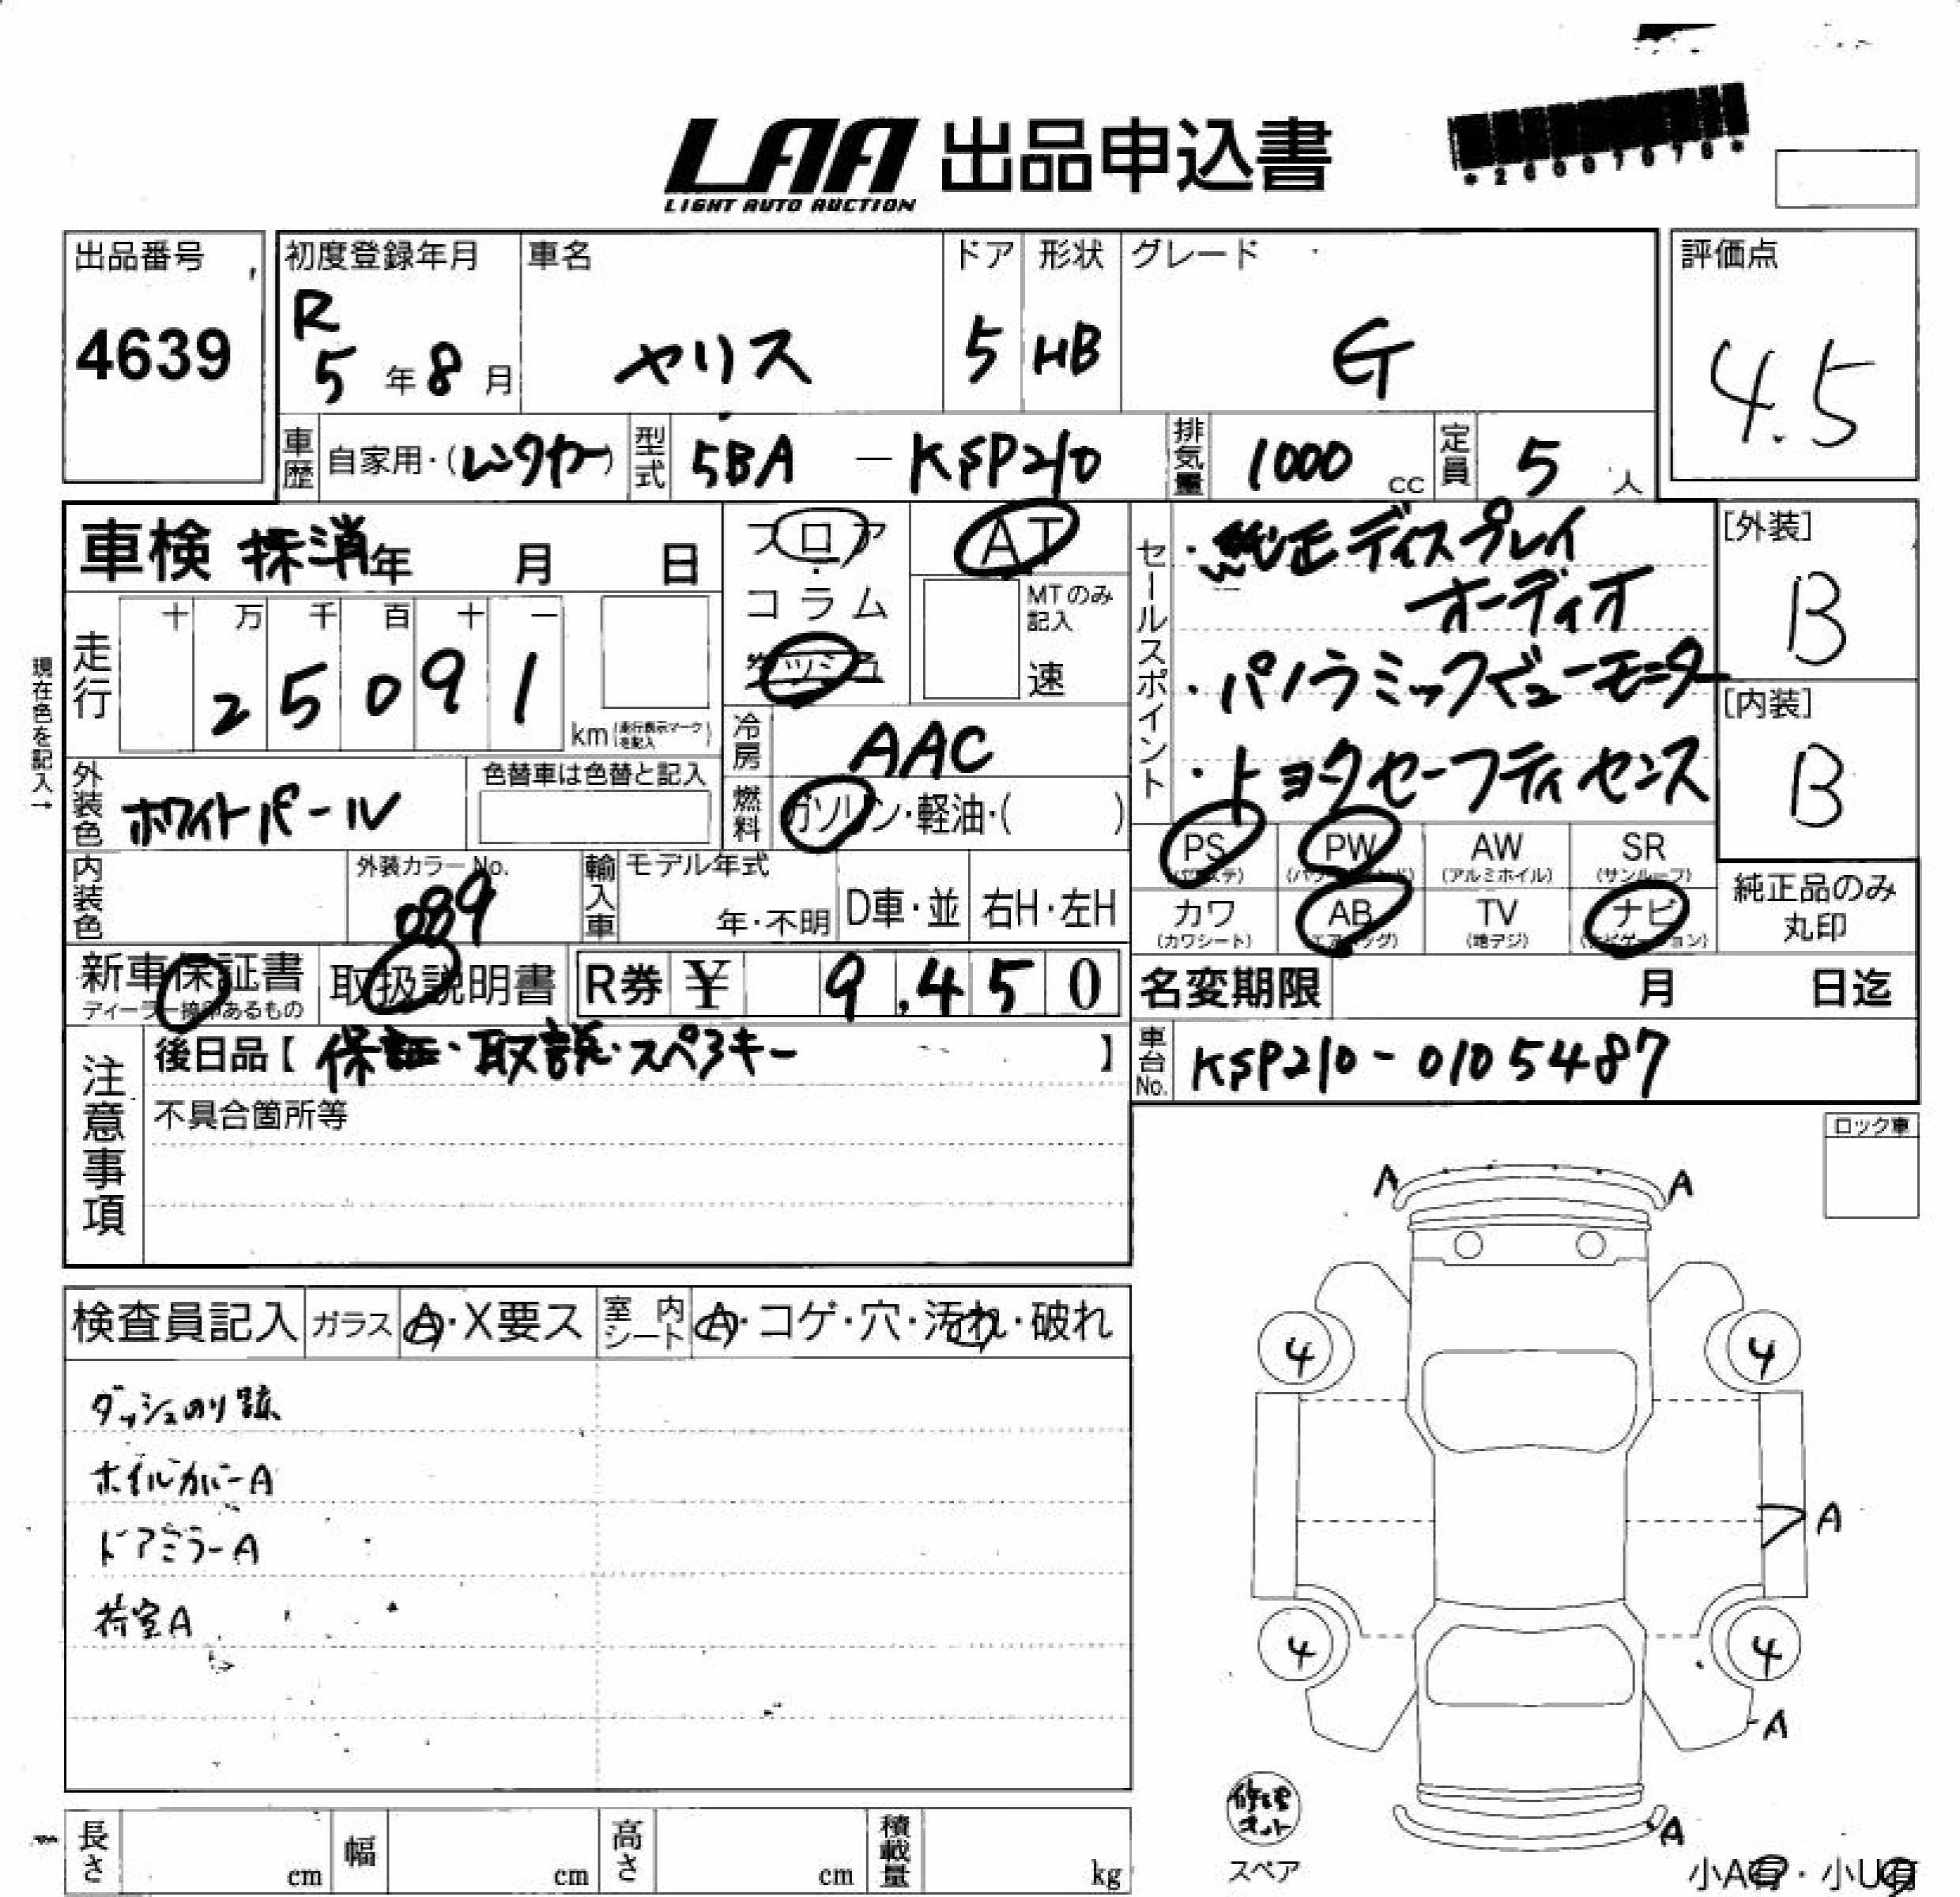 LAA 出品申込書
LIGHT AUTO AUCTION
*26007076*
出品番号
4639
初度登録年月
R
5年8月
車名
ヤリス
ドア
5
形状
HB
グレード
G
評価点
4.5
車歴 自家用・(レンタカー)
型式 5BA - KSP210
排気量 1000 cc
定員 5 人
車検 抹消年 月 日
フロア
・
コラム
AT
MTのみ
記入
速
現在色を記入→
走行
十 万 千 百 十 一
2 5 0 9 1
km (走行表示マークを記入)
冷房 AAC
燃料 ガソリン・軽油・( )
外装色 ホワイトパール
色替車は色替と記入
内装色
外装カラーNo.
089
輸入車
モデル年式
年・不明
D車・並
右H・左H
セールスポイント
・純正ディスプレイ
オーディオ
・パノラミックビューモニター
・トヨタセーフティセンス
[外装]
B
[内装]
B
PS (パワステ)
PW (パワーウィンド)
AW (アルミホイル)
SR (サンルーフ)
カワ (カワシート)
AB (エアバッグ)
TV (地デジ)
ナビ (ナビゲーション)
純正品のみ
丸印
新車保証書
ディーラー捺印あるもの
取扱説明書
R券 ¥ 9,450
名変期限 月 日迄
車台No. KSP210-0105487
注意事項
後日品【 保証・取説・スペアキー 】
不具合箇所等
ロック車
検査員記入
ガラス A・X要ス
室内シート A・コゲ・穴・汚れ・破れ
ダッシュのり跡
ホイルカバーA
ドアミラーA
荷室A
A A
4 4
A
4 4
A
A
修理キット
スペア
小A有・小U有
長さ cm
幅 cm
高さ cm
積載量 kg